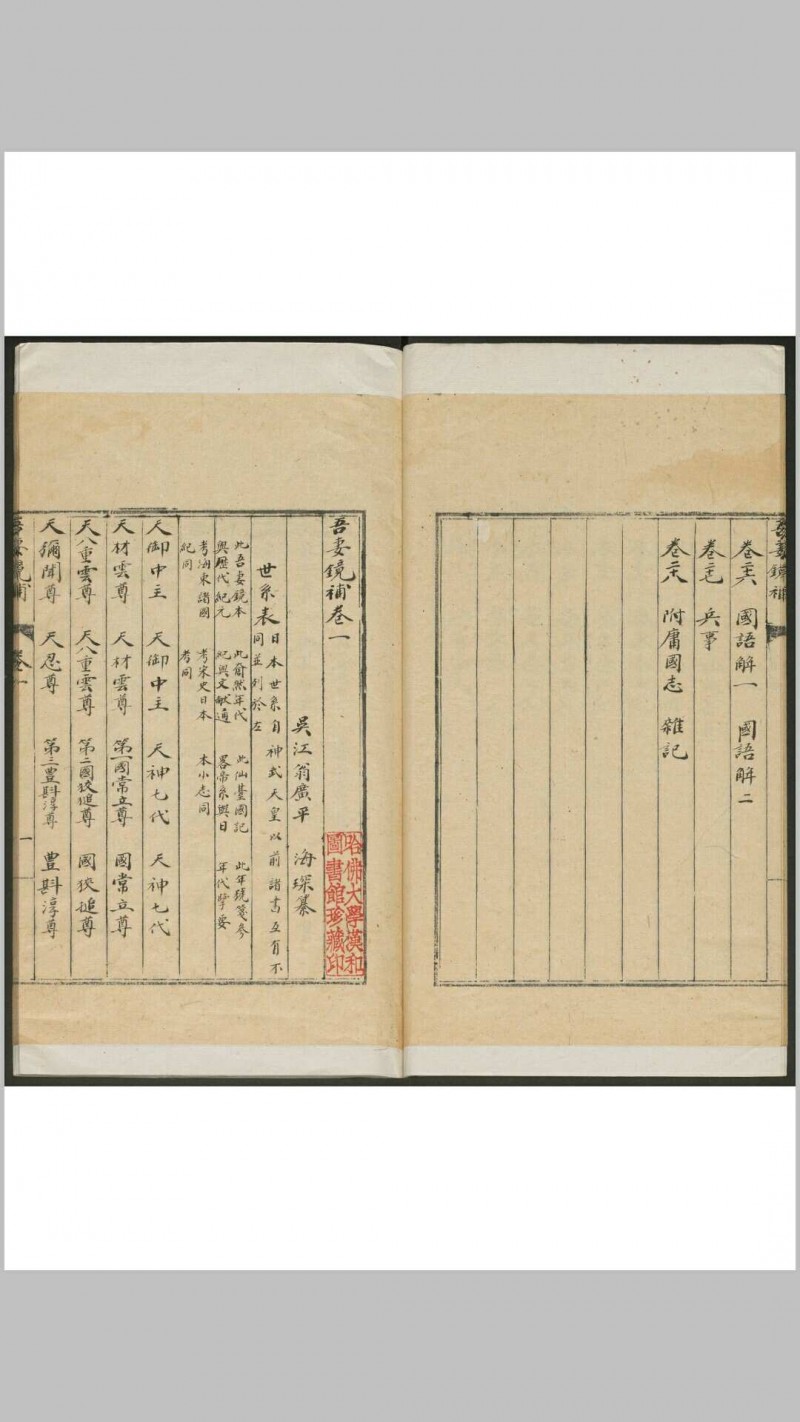 卷二六 國語解一 國語解二
卷二七 兵事
卷二八 附庸國志 雜記
吾妻鏡補卷一
哈佛大學漢和
圖書館珍藏印
吳江翁廣平 海琛纂
世系表 日本世系自神武天皇以前諸書互有不
同並列於左
此吾妻鏡本 此奝然年代 此仙臺國記 此年號箋參
與歷代紀元 紀與文獻通 畧帝系與日 年代擥要
考海東諸國 考宋史日本 本小志同
紀同 考同
天御中主 天御中主 天神七代 天神七代
天材雲尊 天材雲尊 第一國常立尊 國常立尊
天八重雲尊 天八重雲尊 第二國狹槌尊 國狹槌尊
天彌聞尊 天忍尊 第三豊斟渟尊 豊斟渟尊
吾妻鏡補 卷一 一